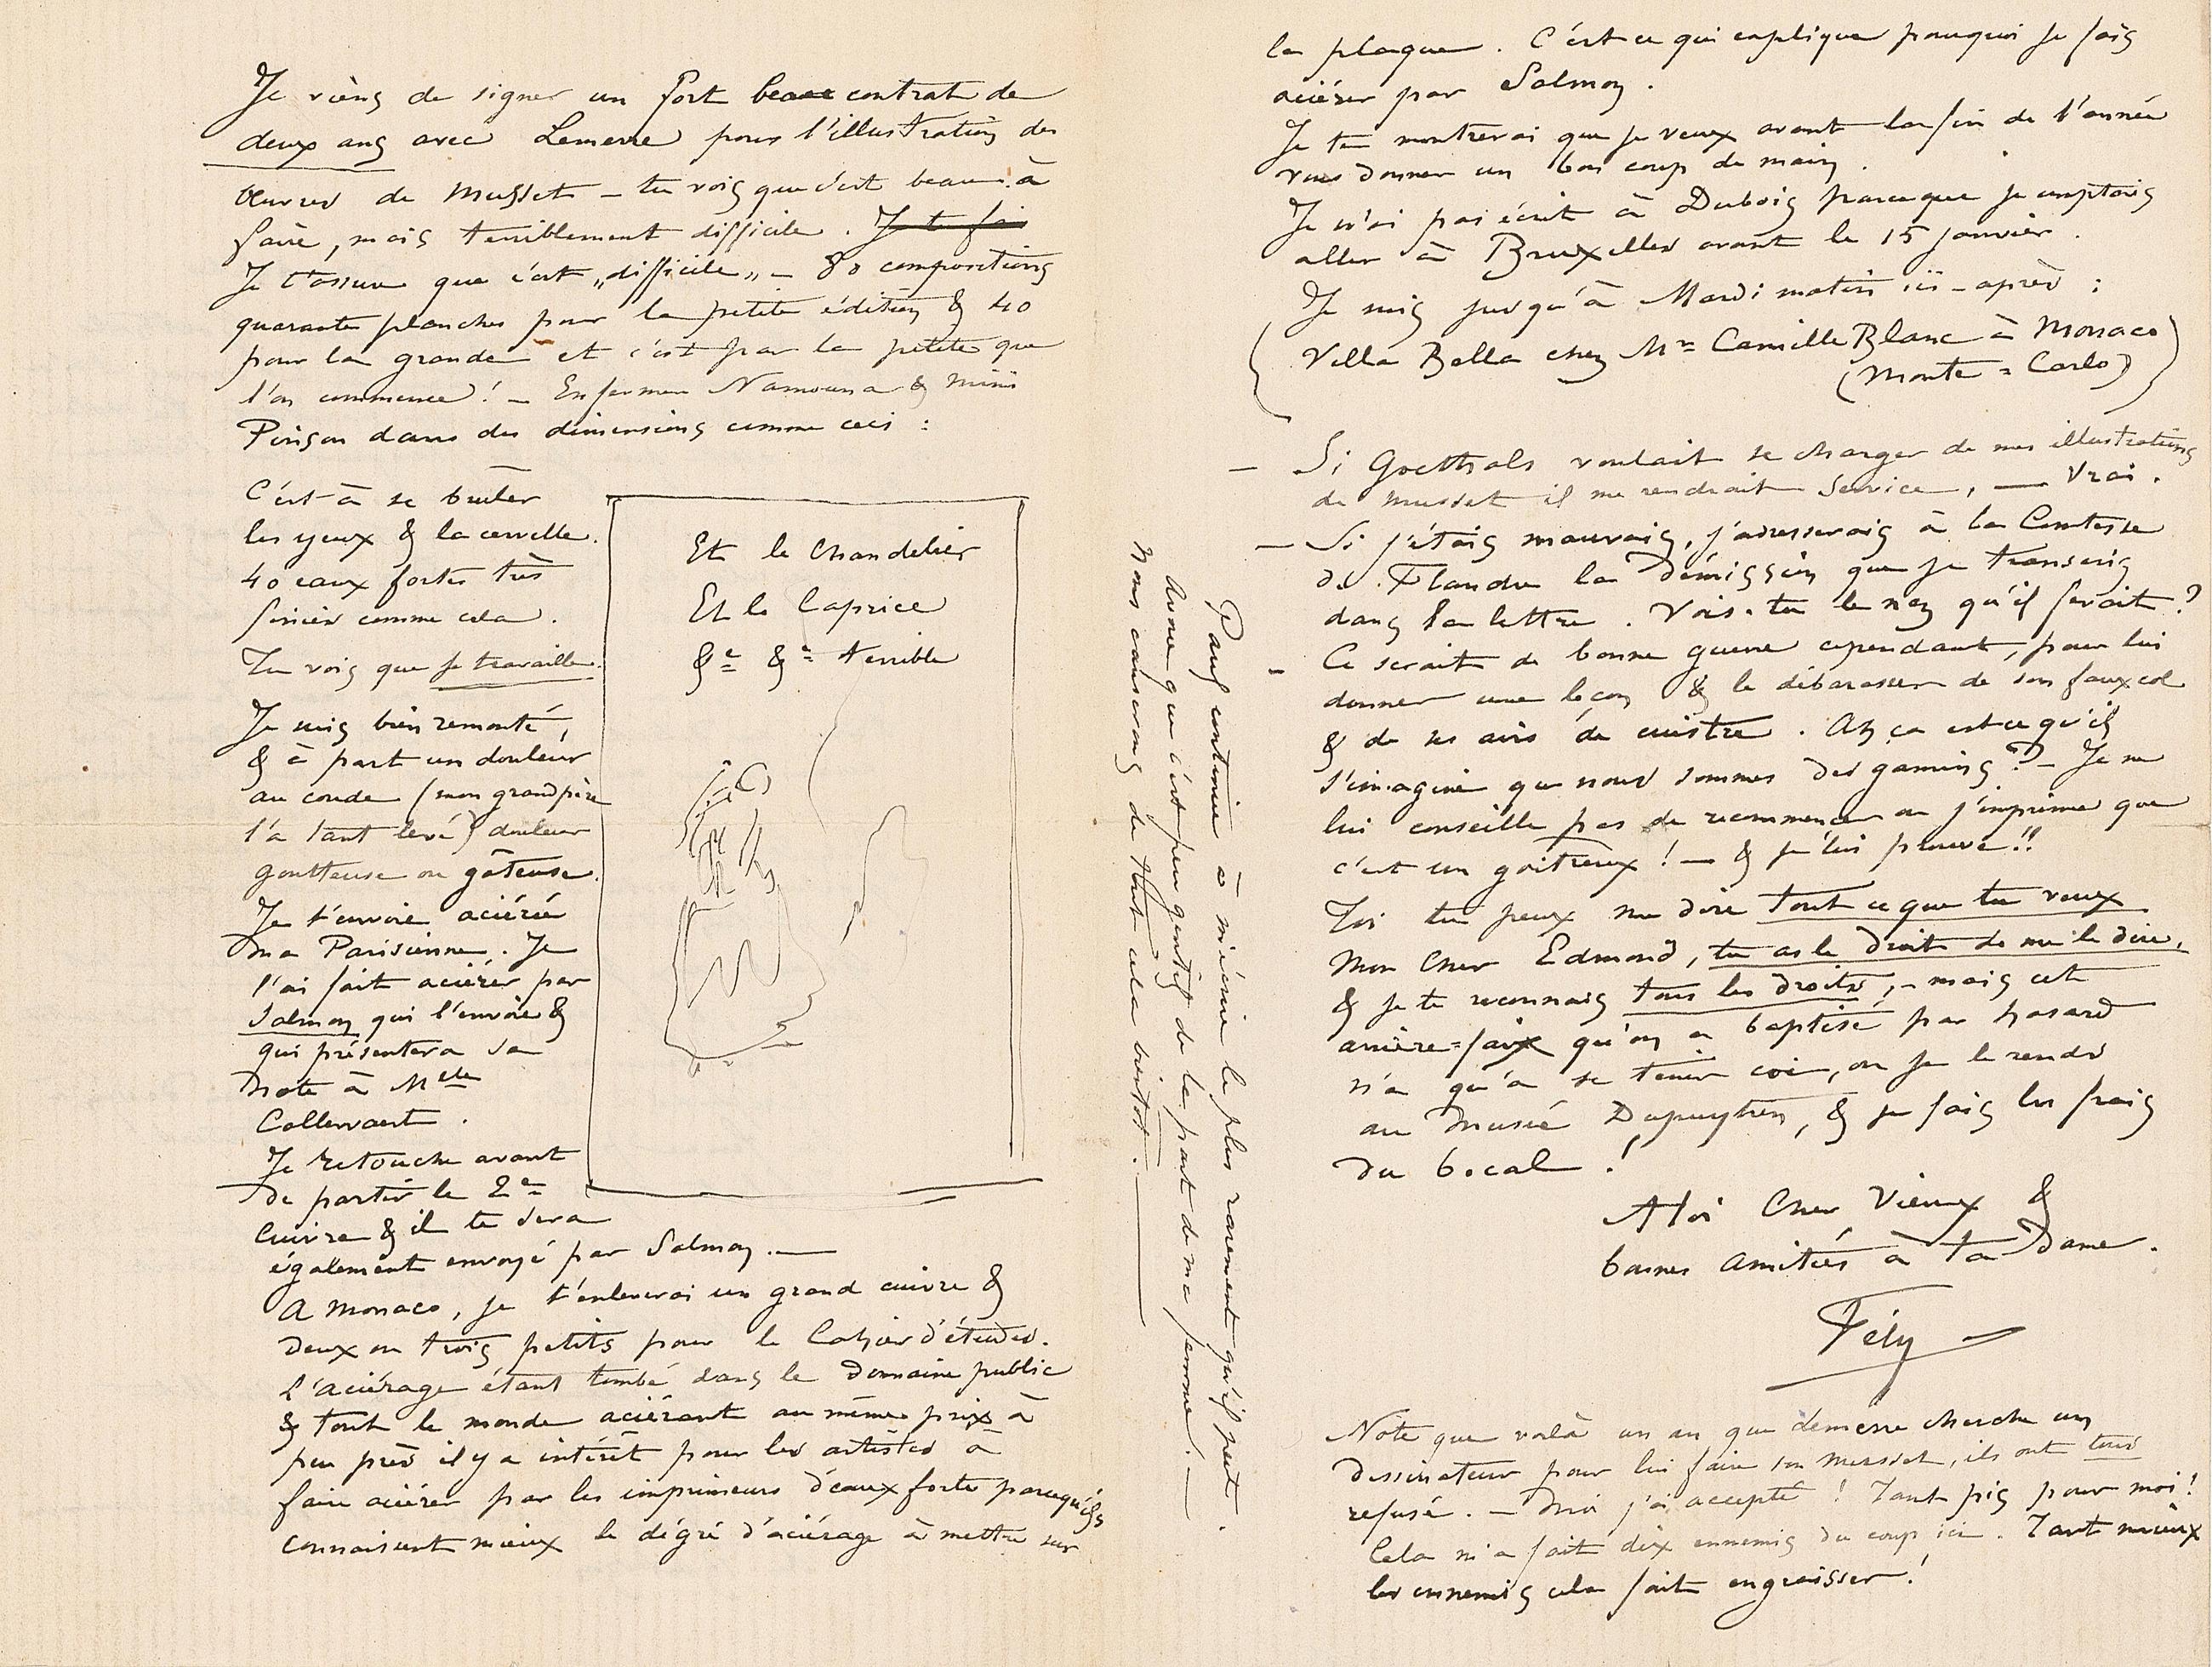 Je viens de signer un fort beau contrat de
deux ans avec Lemerre pour l'illustration des
Œuvres de Musset – tu vois que c'est beau à
faire, mais terriblement difficile. Je te fai
Je t'assure que c'est „difficile„ – 80 compositions
quarante planches pour la petite édition & 40
pour la grande et c'est par la petite que
l'on commence! – Enfermer Namouna & Mimi
Pinson dans des dimensions comme ceci :
C'est à se bruler
les yeux & la cervelle.
40 eaux fortes très
finies comme cela.
Tu vois que je travaille.
Je suis bien remonté,
& à part un douleur
au coude (mon grandpère
l'a tant levé) douleur
goutteuse ou gâteuse.
Je t'envoie aciérée
ma Parisienne. Je
l'ai fait aciérer par
Salmon qui l'envoie &
qui présentera sa
note à Mlle
Collervaert.
Je retouche avant
de partir le 2e
Cuivre & il te sera
également envoyé par Salmon. —
Et le Chandelier
Et le Caprice
&e &e terrible
A Monaco, je t'enleverai un grand cuivre &
deux ou trois petits pour le Cahier d'études.
L'aciérage étant tombé dans le Domaine public
& tout le monde aciérant au même prix à
peu près il y a intérêt pour les artistes à
faire aciérer par les imprimeurs d'eaux fortes parcequ'ils
connaissent mieux le dégré d'aciérage à mettre sur
la plaque. C'est ce qui explique pourquoi je fais
aciérer par Salmon.
Je te montrerai que je veux avant la fin de l'année
vous donner un bon coup de main.
Je n'ai pas écrit à Dubois parceque je comptais
aller à Bruxelles avant le 15 janvier.
Je suis jusqu'à Mardi matin ici-après :
(Villa Bella chez Mr Camille Blanc à Monaco
(Monte = Carlo))
– Si Goethals voulait se charger de mes illustrations
de Musset il me rendrait service, — Vrai.
– Si j'étais mauvais, j'adresserais à la Comtesse
de Flandre la démission que je transcris
dans la lettre. Vois-tu le nez qu'il ferait?
– Ce serait de bonne guerre cependant, pour lui
donner une leçon & le débarasser de son faux col
& de ses airs de cuistre. Ah ça est-ce qu'il
s'imagine que nous sommes des gamins? – Je ne
lui conseille pas de recommencer ou j'imprime que
c'est un goitreux! – & je lui prouve!!
Toi tu peux me dire tout ce que tu veux
Mon Cher Edmond, tu as le droit de me le dire,
& je te reconnais tous les droits, – mais cet
arrière=faix qu'on a baptisé par hasard
n'a qu'à se tenir coi, ou je le rends
au Musée Dupuytren, & je fais les frais
du bocal!
A toi Cher Vieux &
bonnes amitiés à ta Dame.
Fély
Note que voilà un an que Lemerre cherche un
dessinateur pour lui faire son Musset, ils ont tous
refusé. – Moi j'ai accepté! Tant pis pour moi!
Cela m'a fait dix ennemis du coup ici. Tant mieux
les ennemis cela fait engraisser!
Paul continue à m'écrire le plus rarement qu'il peut.
Avoue que c'est peu gentil de la part de ma femme! —
Nous causerons de tout cela bientôt. —